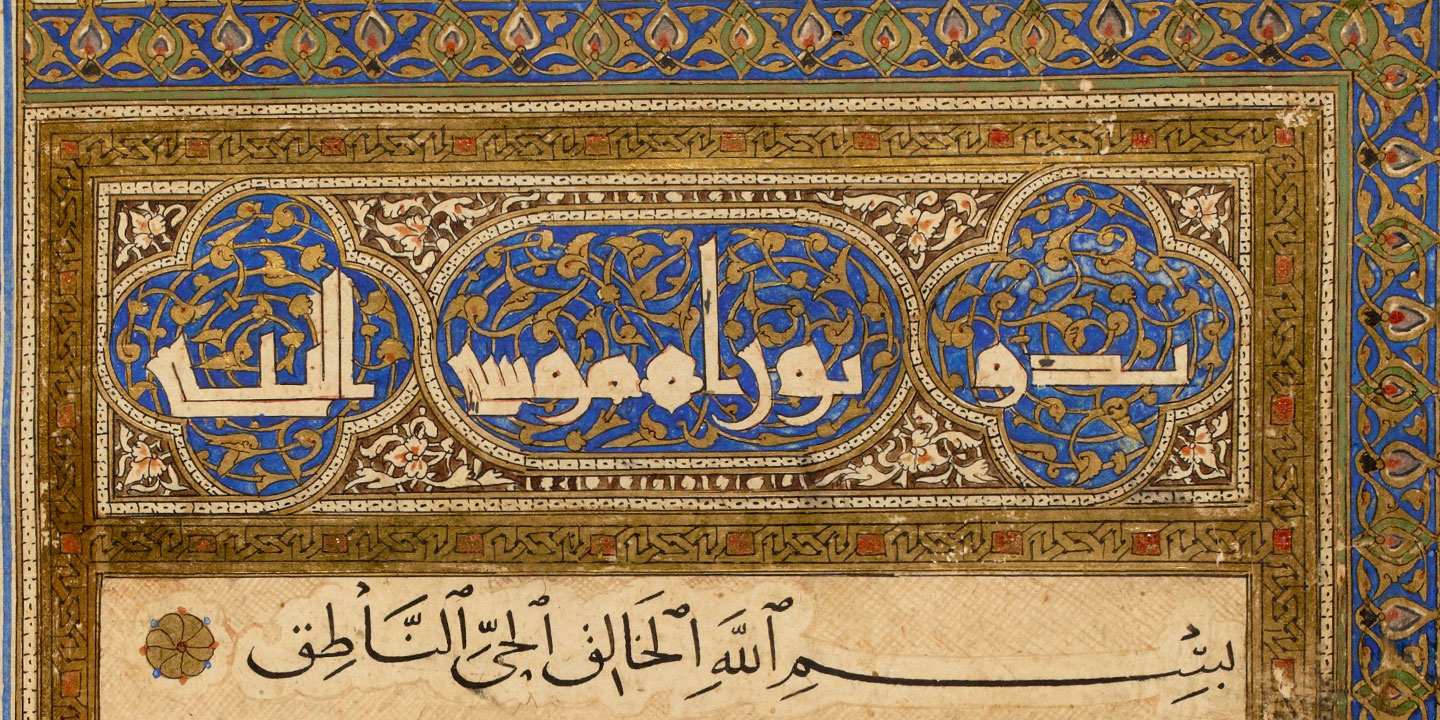 بدو توراه موسى النبى
بِسْمِ ٱللَّهِ ٱلخَالِقِ ٱلحَىِّ ٱلنَّاطِقِ